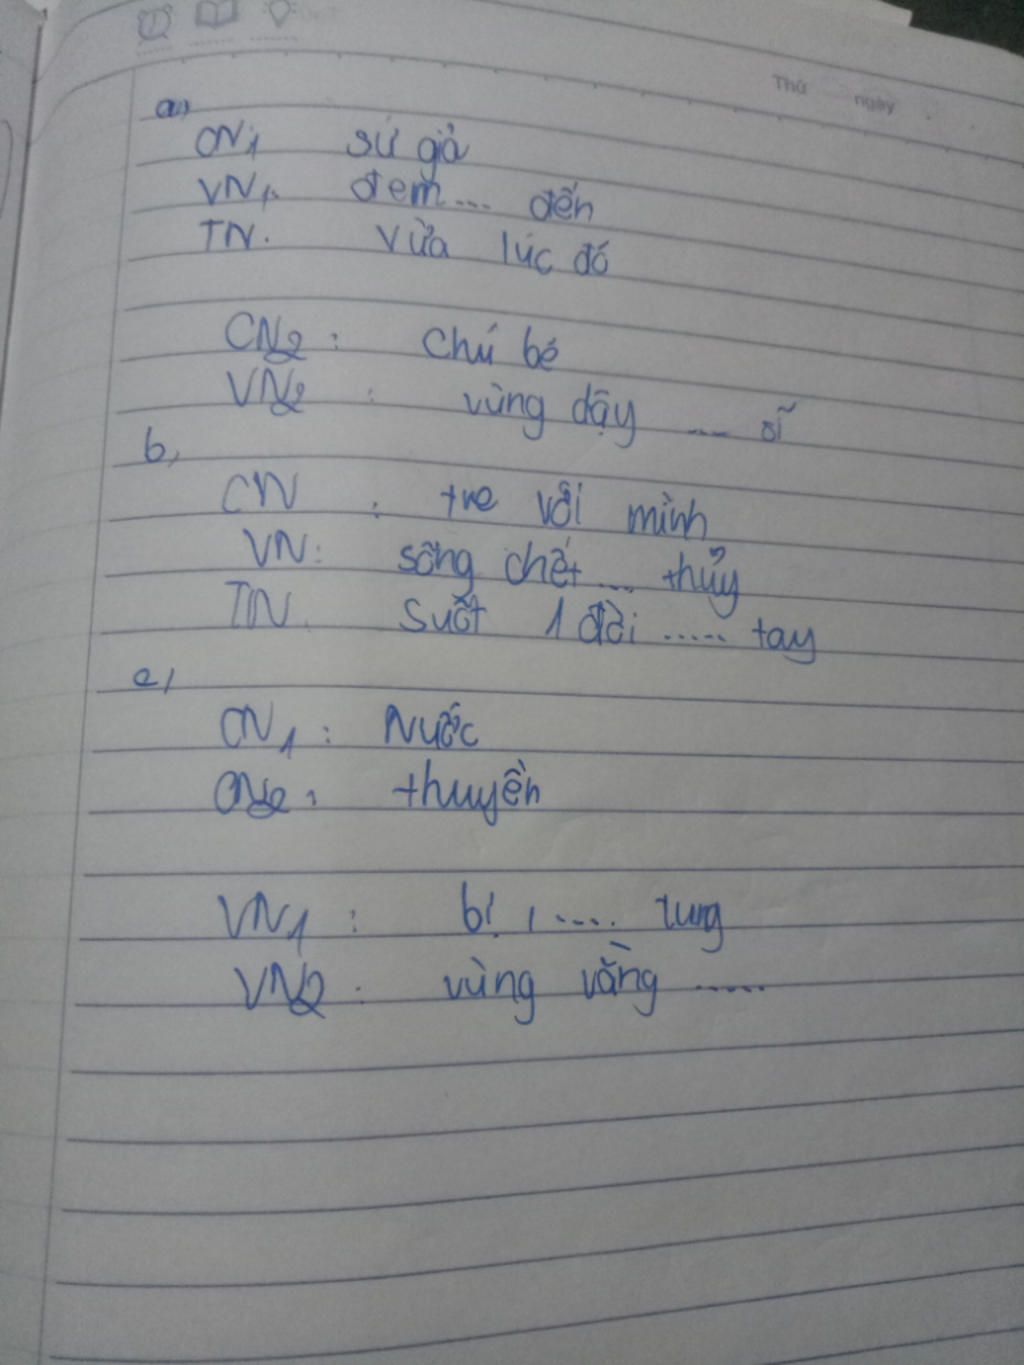 Thứ ngày
a,
CN1 sứ giả
VN1. đem... đến
TN. Vừa lúc đó
CN2: Chú bé
VN2: vùng dậy .... sĩ
b,
CN: tre với mình
VN: sống chết... thủy
TN. Suốt 1 đời ..... tay
c,
CN1: Nước
CN2: thuyền
VN1: bị, .... tung
VN2: vùng vằng .....